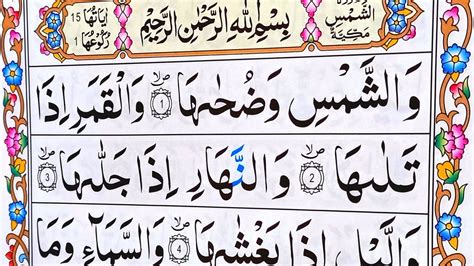 اٰيَاتُهَا 15 رُكُوْعُهَا 1
بِسْمِ اللّٰهِ الرَّحْمٰنِ الرَّحِيْمِ
الشَّمْسِ مَكِّيَّةٌ
وَالشَّمْسِ وَضُحٰىهَا ۝1 ۙ وَالْقَمَرِ اِذَا
تَلٰىهَا ۝2 ۙ وَالنَّهَارِ اِذَا جَلّٰىهَا ۝3 ۙ
وَالَّيْلِ اِذَا يَغْشٰىهَا ۝4 ۙ وَالسَّمَآءِ وَمَا